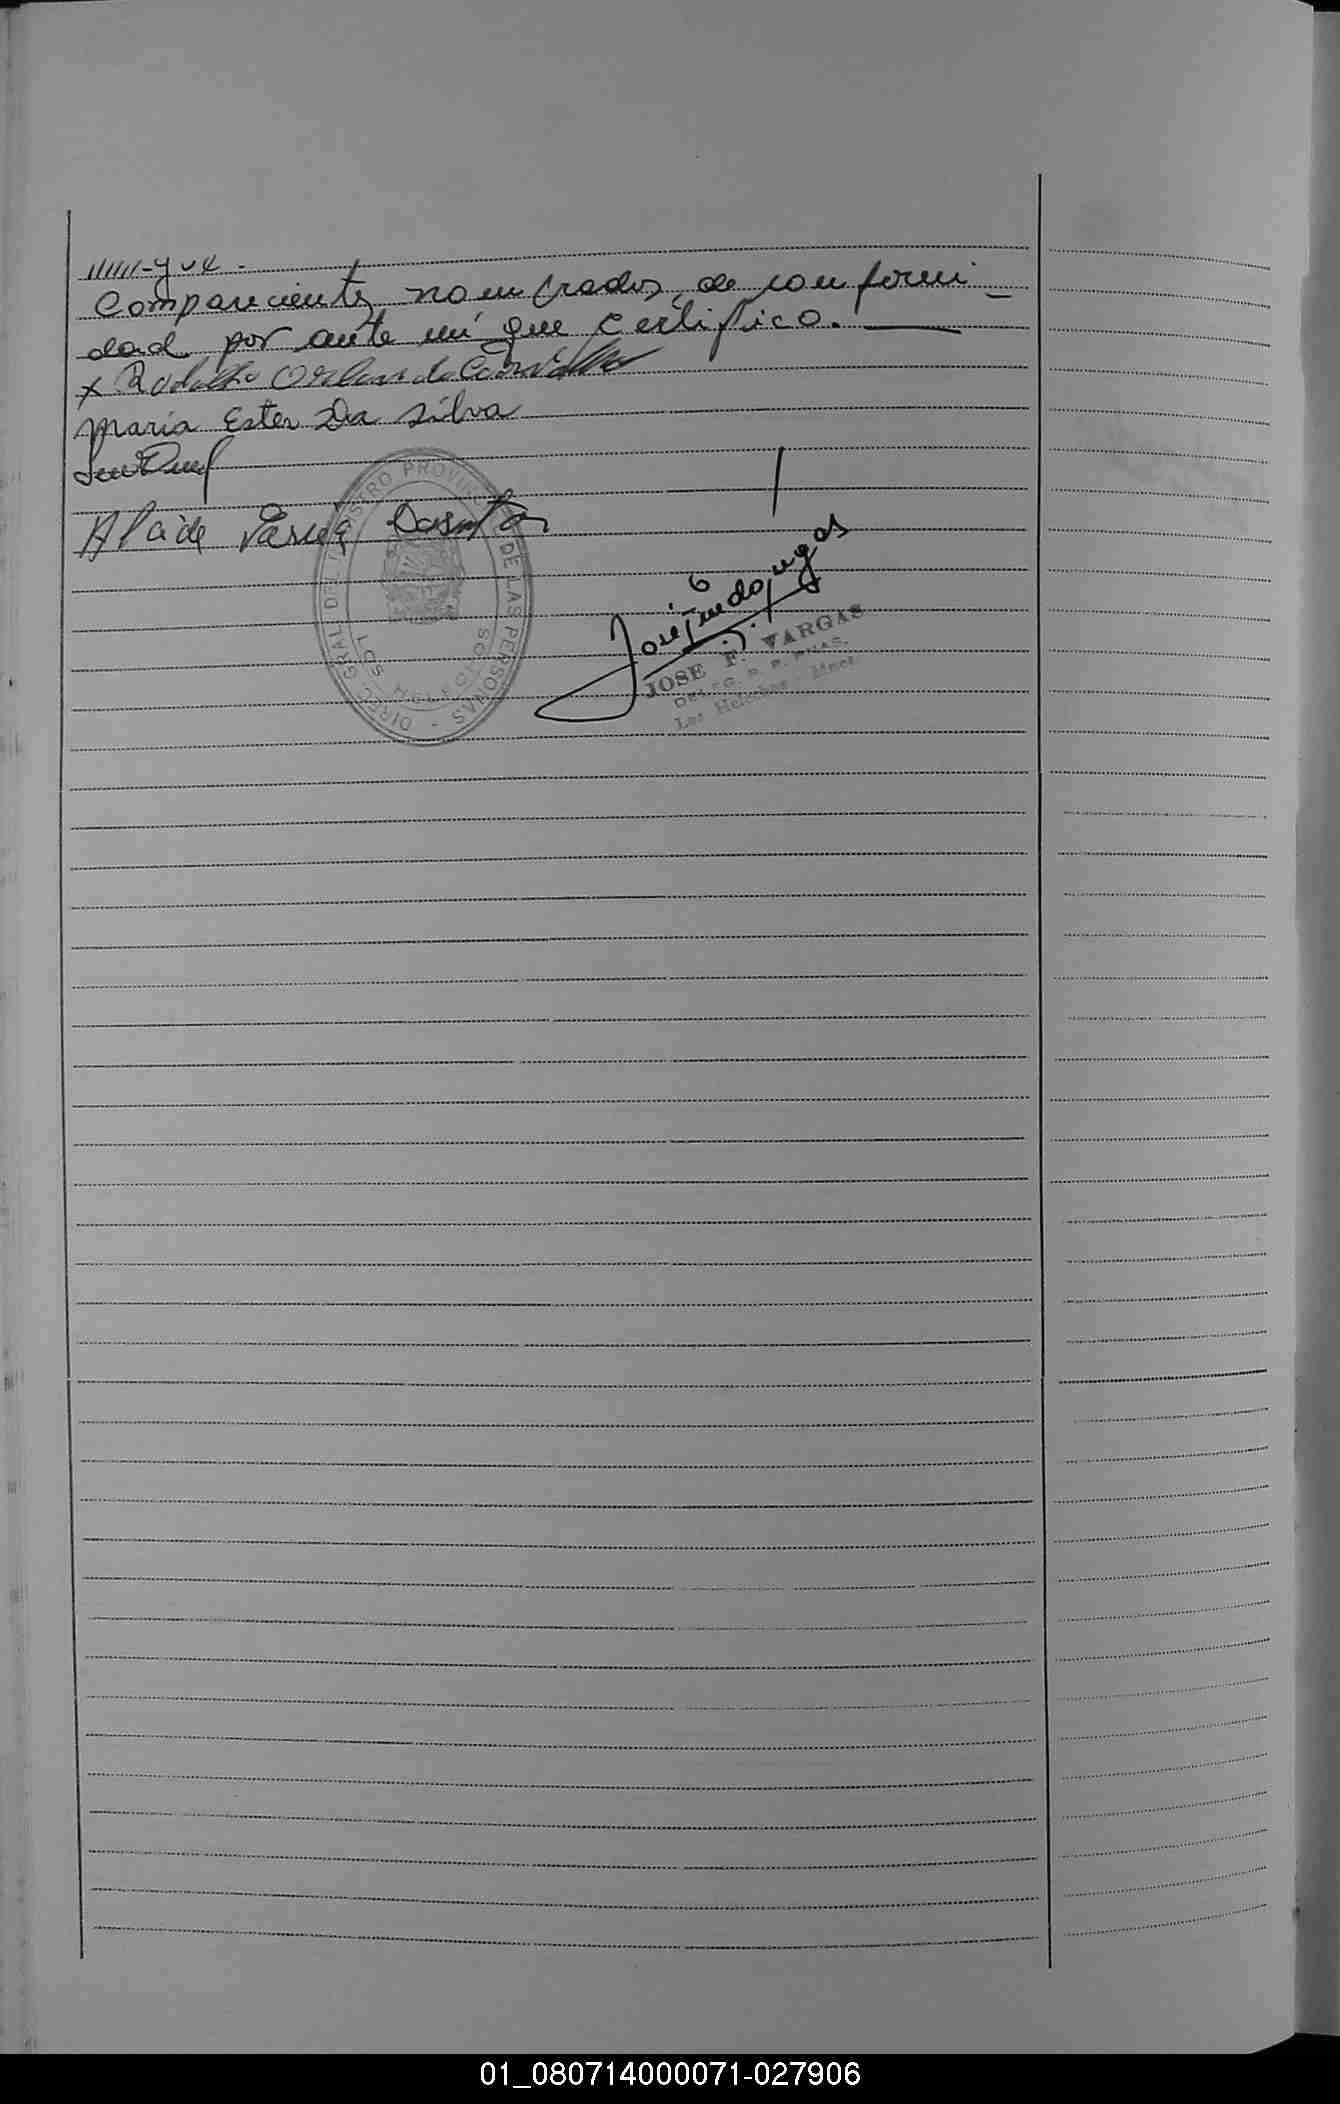 //////-que.-
Comparecientes nombrados, de conformi-
dad por ante mí que Certifico.
x Rodolfo Orlando
Maria Ester Da Silva
Alaide
DIREC. GRAL. DEL REGISTRO PROVINCIAL DE LAS PERSONAS -
LOS HELECHOS
José F. Vargas
JOSE F. VARGAS
DELEG. R. P.
Los Helechos - Mnes.
01_080714000071-027906